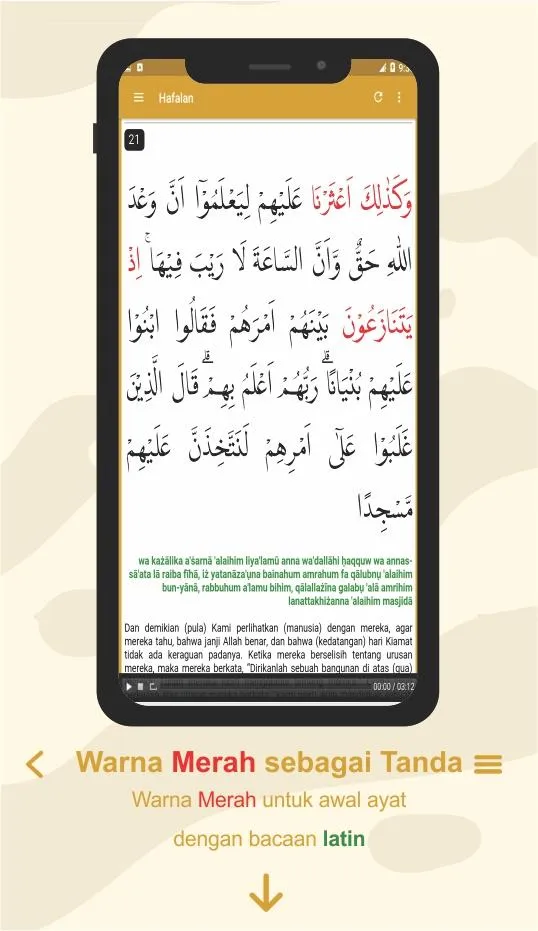 9:3
Hafalan
21
وَكَذٰلِكَ اَعْثَرْنَا عَلَيْهِمْ لِيَعْلَمُوْٓا اَنَّ وَعْدَ
اللّٰهِ حَقٌّ وَّاَنَّ السَّاعَةَ لَا رَيْبَ فِيْهَاۚ اِذْ
يَتَنَازَعُوْنَ بَيْنَهُمْ اَمْرَهُمْ فَقَالُوا ابْنُوْا
عَلَيْهِمْ بُنْيَانًاۗ رَبُّهُمْ اَعْلَمُ بِهِمْۗ قَالَ الَّذِيْنَ
غَلَبُوْا عَلٰٓى اَمْرِهِمْ لَنَتَّخِذَنَّ عَلَيْهِمْ
مَّسْجِدًا
wa każālika a'ṡarnā 'alaihim liya'lamū anna wa'dallāhi ḥaqquw wa annas-
sā'ata lā raiba fīhā, iż yatanāza'ụna bainahum amrahum fa qālubnụ 'alaihim
bun-yānā, rabbuhum a'lamu bihim, qālallażīna galabụ 'alā amrihim
lanattakhiżanna 'alaihim masjidā
Dan demikian (pula) Kami perlihatkan (manusia) dengan mereka, agar
mereka tahu, bahwa janji Allah benar, dan bahwa (kedatangan) hari Kiamat
tidak ada keraguan padanya. Ketika mereka berselisih tentang urusan
mereka, maka mereka berkata, "Dirikanlah sebuah bangunan di atas (gua)
00:00 / 03:12
Warna Merah sebagai Tanda
Warna Merah untuk awal ayat
dengan bacaan latin